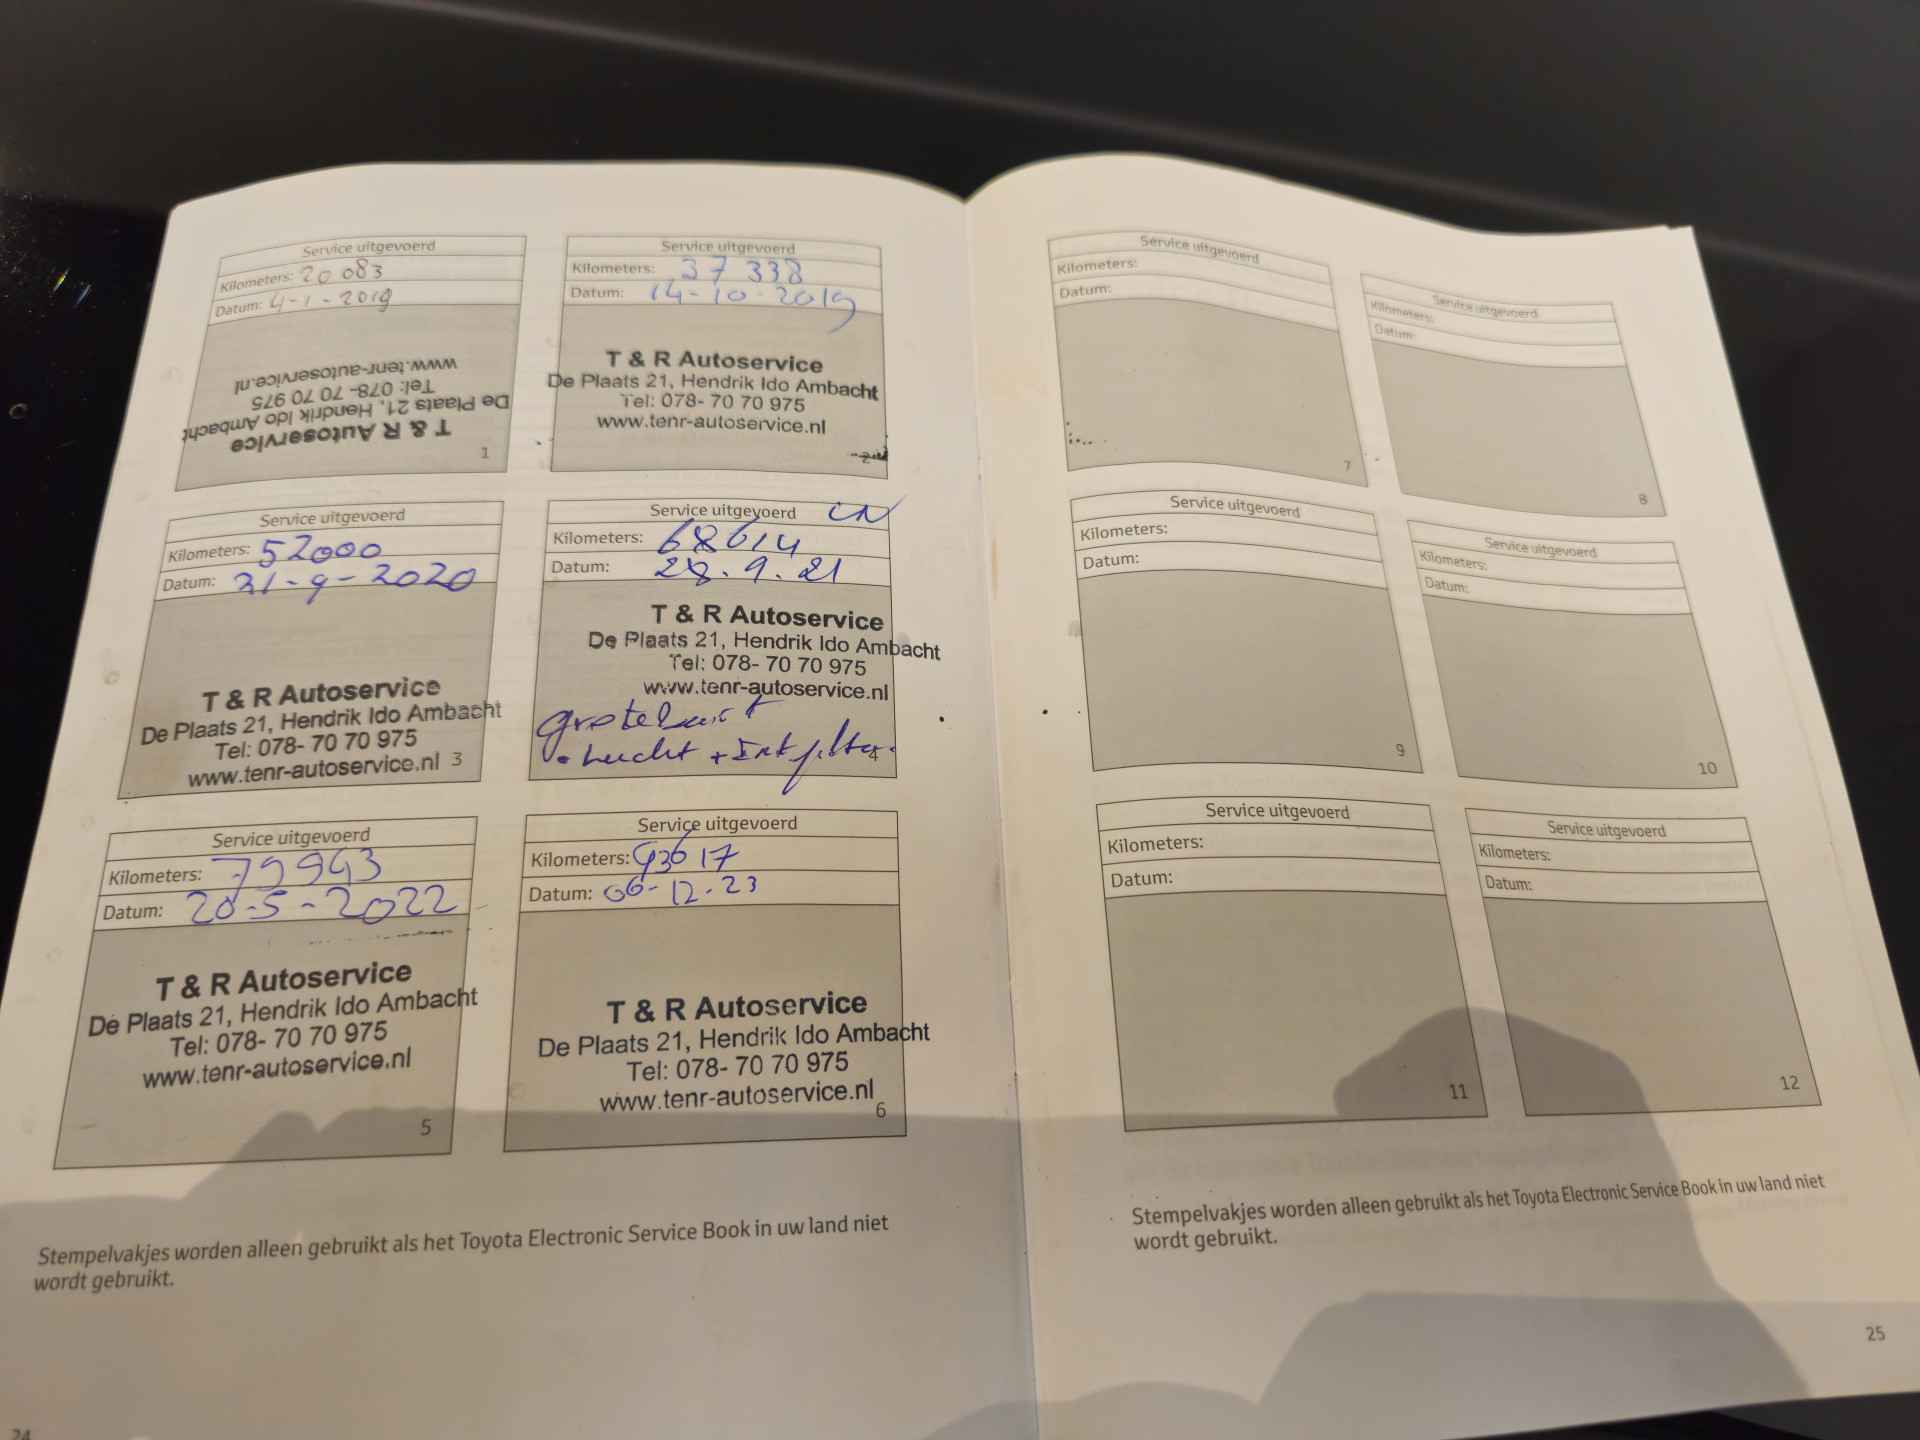 Service uitgevoerd
Kilometers: 20 083
Datum: 4-1-2019
T & R Autoservice
De Plaats 21, Hendrik Ido Ambacht
Tel: 078- 70 70 975
www.tenr-autoservice.nl
1
Service uitgevoerd
Kilometers: 37 338
Datum: 14-10-2019
T & R Autoservice
De Plaats 21, Hendrik Ido Ambacht
Tel: 078- 70 70 975
www.tenr-autoservice.nl
2
Service uitgevoerd
Kilometers: 52000
Datum: 21-9-2020
T & R Autoservice
De Plaats 21, Hendrik Ido Ambacht
Tel: 078- 70 70 975
www.tenr-autoservice.nl
3
Service uitgevoerd
Kilometers: 68614
Datum: 28.9.21
T & R Autoservice
De Plaats 21, Hendrik Ido Ambacht
Tel: 078- 70 70 975
www.tenr-autoservice.nl
grote beurt
+ Int filter
4
Service uitgevoerd
Kilometers: 79943
Datum: 20-5-2022
T & R Autoservice
De Plaats 21, Hendrik Ido Ambacht
Tel: 078- 70 70 975
www.tenr-autoservice.nl
5
Service uitgevoerd
Kilometers: 93617
Datum: 06-12-23
T & R Autoservice
De Plaats 21, Hendrik Ido Ambacht
Tel: 078- 70 70 975
www.tenr-autoservice.nl
6
Stempelvakjes worden alleen gebruikt als het Toyota Electronic Service Book in uw land niet
wordt gebruikt.
24
Service uitgevoerd
Kilometers:
Datum:
7
Service uitgevoerd
Kilometers:
Datum:
8
Service uitgevoerd
Kilometers:
Datum:
9
Service uitgevoerd
Kilometers:
Datum:
10
Service uitgevoerd
Kilometers:
Datum:
11
Service uitgevoerd
Kilometers:
Datum:
12
Stempelvakjes worden alleen gebruikt als het Toyota Electronic Service Book in uw land niet
wordt gebruikt.
25